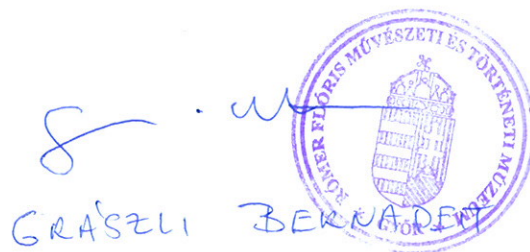 RÓMER FLÓRIS MŰVÉSZETI ÉS TÖRTÉNETI MÚZEUM
GYŐR
GRÁSZLI BERNADETT